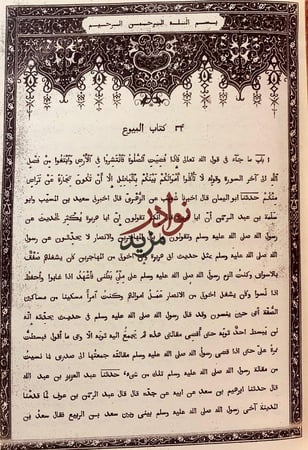 بسم الله الرحمن الرحيم
٣٤ كتاب البيوع
١ باب ما جاء في قول الله تعالى فَإِذَا قُضِيَتِ الصَّلٰوةُ فَانْتَشِرُوا فِي الْأَرْضِ وَابْتَغُوا مِنْ فَضْلِ
اللهِ الى آخر السورة وقوله لَا تَأْكُلُوا أَمْوَالَكُمْ بَيْنَكُمْ بِالْبَاطِلِ إِلَّا أَنْ تَكُونَ تِجَارَةً عَنْ تَرَاضٍ
مِنْكُمْ حدّثنا ابو اليمان قال اخبرنا شعيب عن الزهرى قال اخبرنى سعيد بن المسيب وابو
سلمة بن عبد الرحمن أنّ ابا هريرة قال انكم تقولون انّ ابا هريرة يُكثر الحديث عن
رسول الله صلى الله عليه وسلم وتقولون ما بال المهاجرين والانصار لا يحدّثون عن رسول
الله صلى الله عليه وسلم بمثل حديث ابى هريرة وإنّ اخوتى من المهاجرين كان يشغلهم صَفْقٌ
بالاسواق وكنت الزم رسول الله صلى الله عليه وسلم على مِلْءِ بطنى فأشهد اذا غابوا وأحفظ
اذا نسوا وكان يشغل اخوتى من الانصار عَمَلُ اموالهم وكنت امرأً مسكينا من مساكين
الصُفّة أعى حين ينسون وقد قال رسول الله صلى الله عليه وسلم فى حديث يحدّثه انّه
لن يبسط احدٌ ثوبه حتى أقضى مقالتى هذه ثم يَجمع اليه ثوبه الّا وعى ما اقول فبسطت
نمرة علىّ حتى اذا قضى رسول الله صلى الله عليه وسلم مقالته جمعتها الى صدرى فما نسيت
من مقالة رسول الله صلى الله عليه وسلم تلك من شىء حدّثنا عبد العزيز بن عبد الله
قال حدثنا ابراهيم بن سعد عن ابيه عن جدّه قال قال عبد الرحمن بن عوف لمّا قدمنا
المدينة آخى رسول الله صلى الله عليه وسلم بينى وبين سعد بن الربيع فقال سعد بن
نوادر